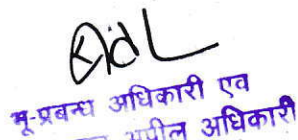 भू-प्रबन्ध अधिकारी एव
अपील अधिकारी